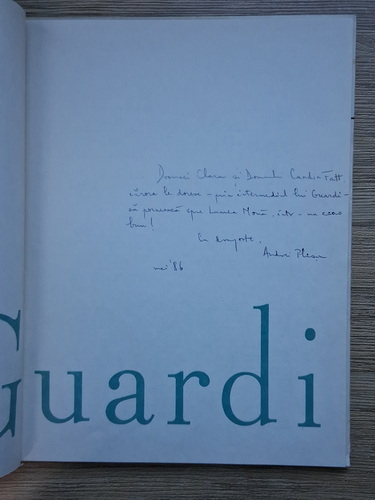 Doamnei Clara și Domnului
cărora le doresc – prin intermediul lui Guardi –
să pornească spre Lumea Nouă, într-un ceas
bun!
Cu dragoste,
Andrei Pleșu
mai '86
Guardi